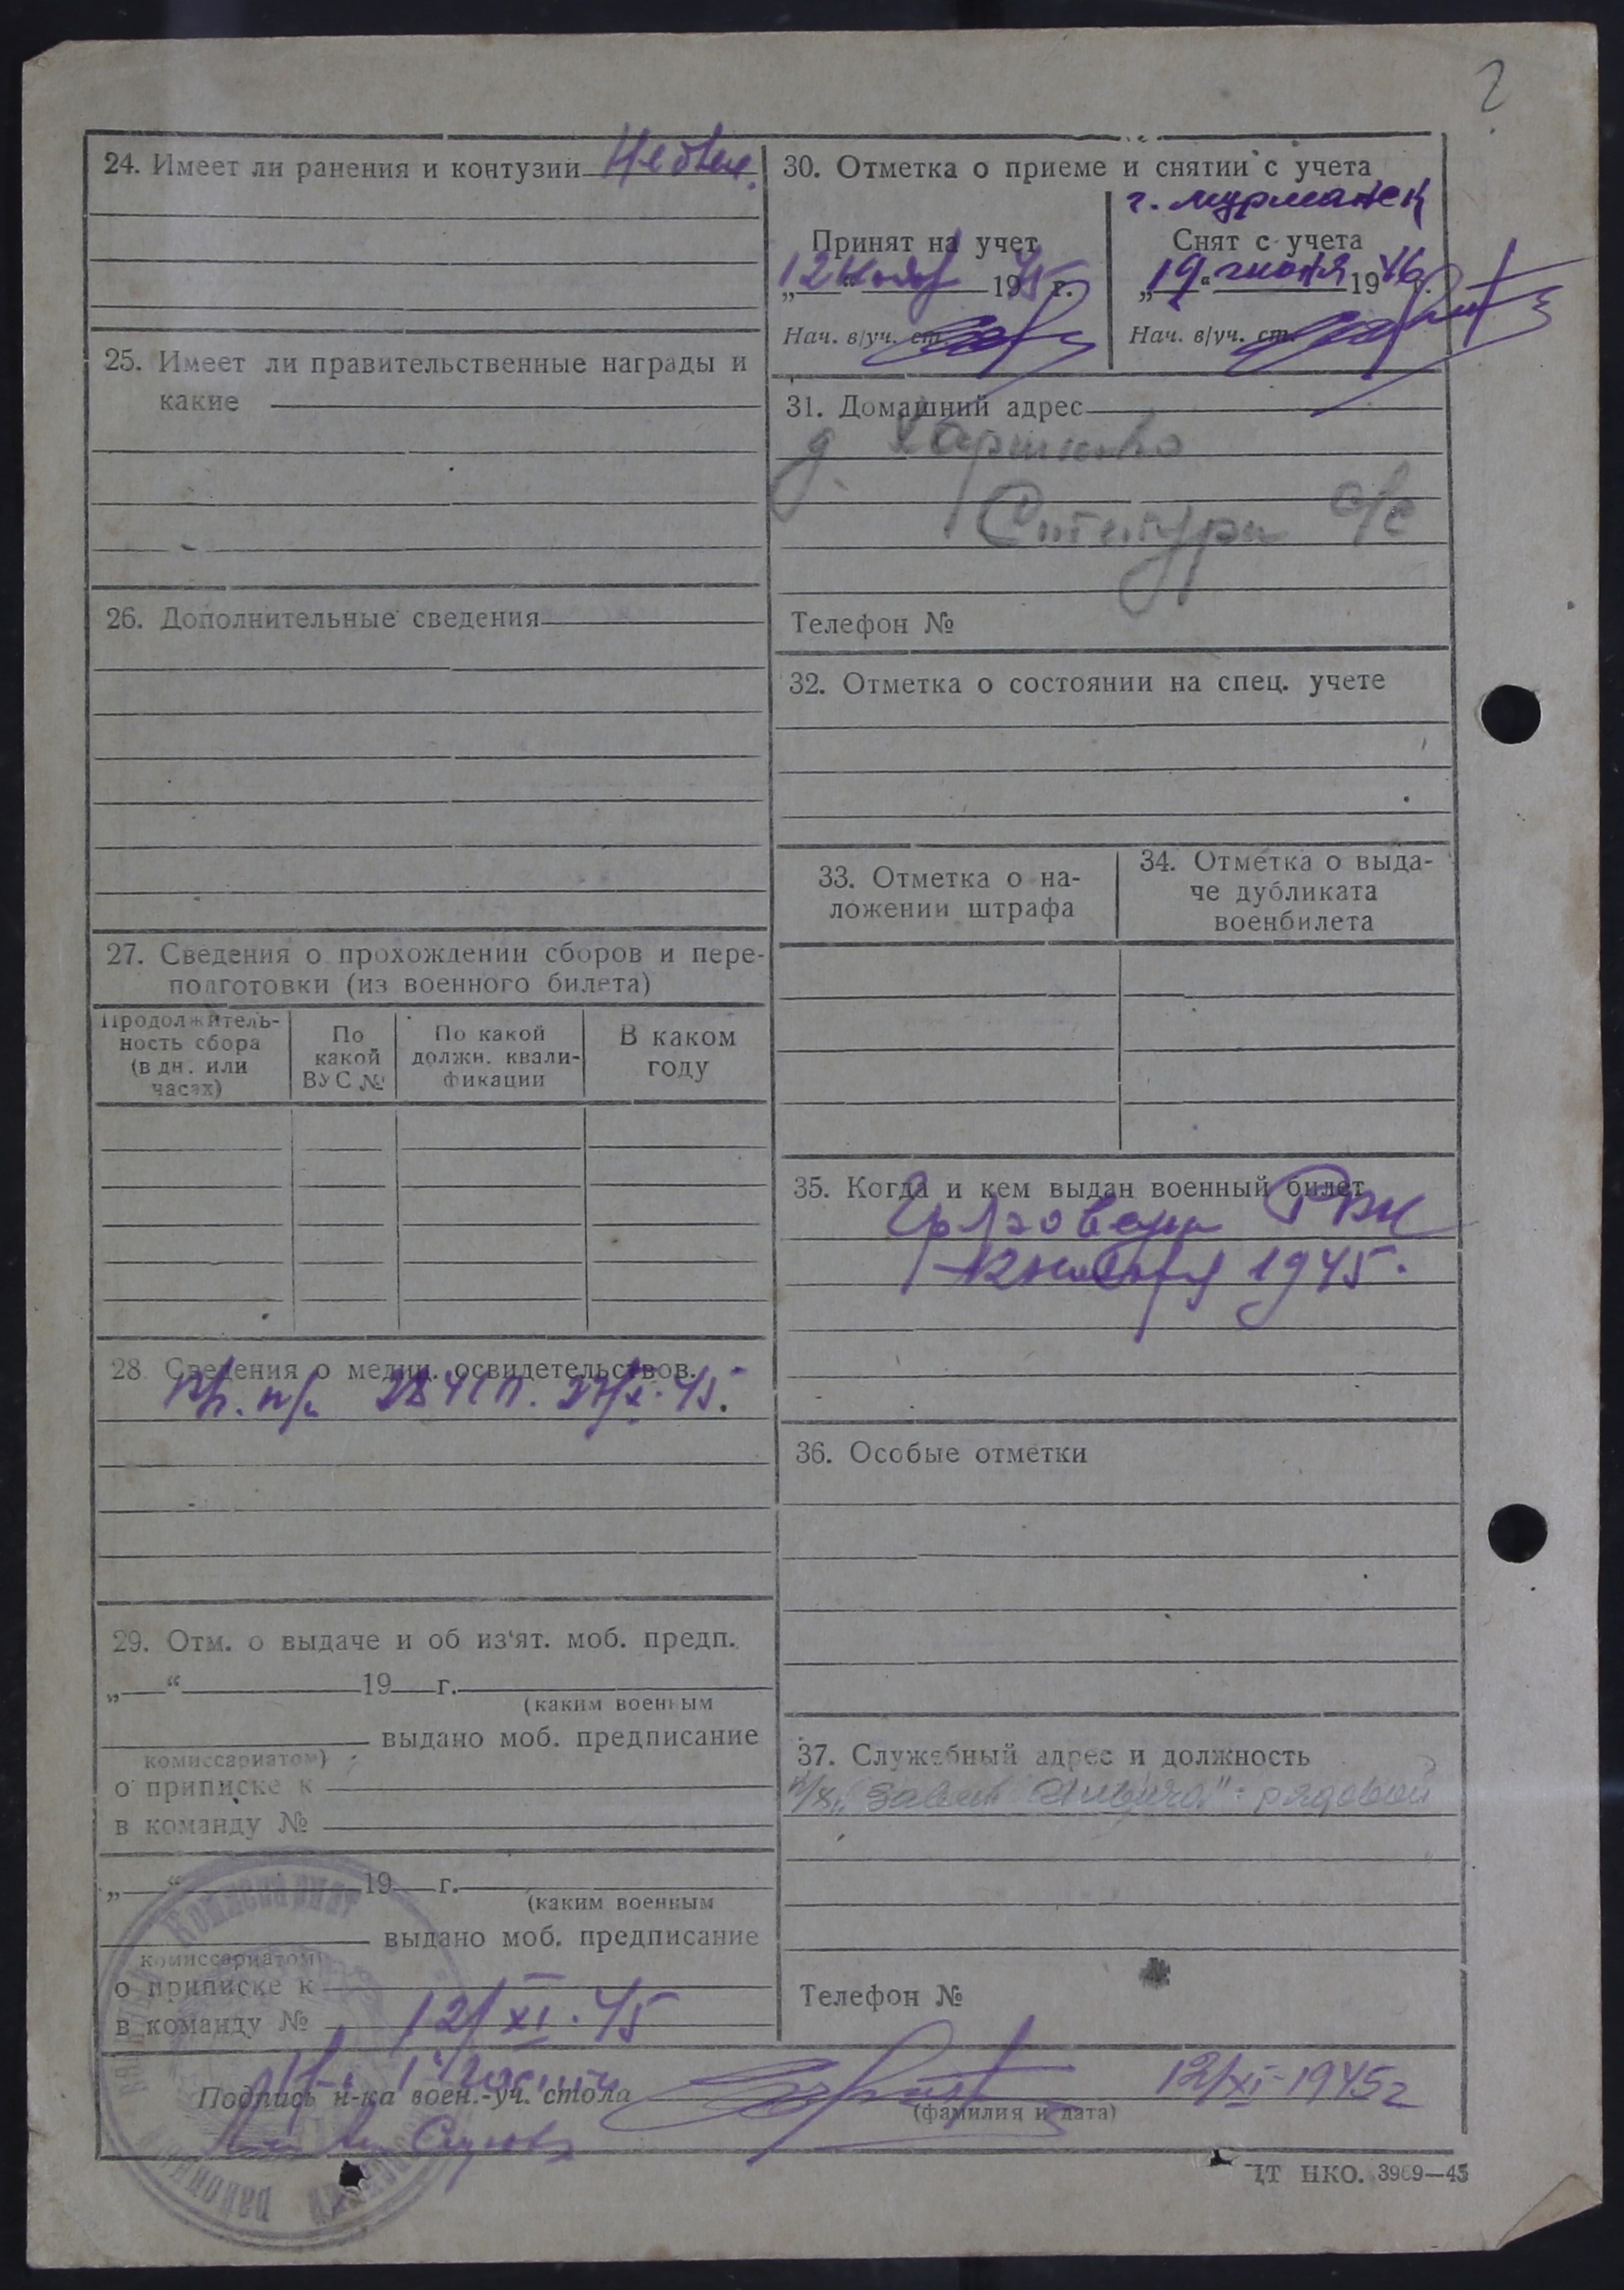 24. Имеет ли ранения и контузии
25. Имеет ли правительственные награды и
какие
26. Дополнительные сведения
27. Сведения о прохождении сборов и пере-
подготовки (из военного билета)
Продолжитель-
ность сбора
(в дн. или
часах)
По
какой
ВУС №
По какой
должн. квали-
фикации
В каком
году
28. Сведения о медиц. освидетельствов.
29. Отм. о выдаче и об из‘ят. моб. предп.
„ “ 19 г.
(каким военным
выдано моб. предписание
комиссариатом)
о приписке к
в команду №
„ “ 19 г.
(каким военным
выдано моб. предписание
комиссариатом)
о приписке к
в команду №
12/XI.45
30. Отметка о приеме и снятии с учета
Принят на учет
„12“ 1945 г.
Нач. в/уч. ст.
г. Мурманск
Снят с учета
„19“ июня 1946 г.
Нач. в/уч. ст.
31. Домашний адрес
д.
с/с
Телефон №
32. Отметка о состоянии на спец. учете
33. Отметка о на-
ложении штрафа
34. Отметка о выда-
че дубликата
военбилета
35. Когда и кем выдан военный билет
Грязовецк РВК
12 ноября 1945.
36. Особые отметки
37. Служебный адрес и должность
к/з „Завет Ильича" - рядовой
Телефон №
Подпись н-ка воен.-уч. стола 12/XI-1945г
(фамилия и дата)
ЦТ НКО. 3969—45